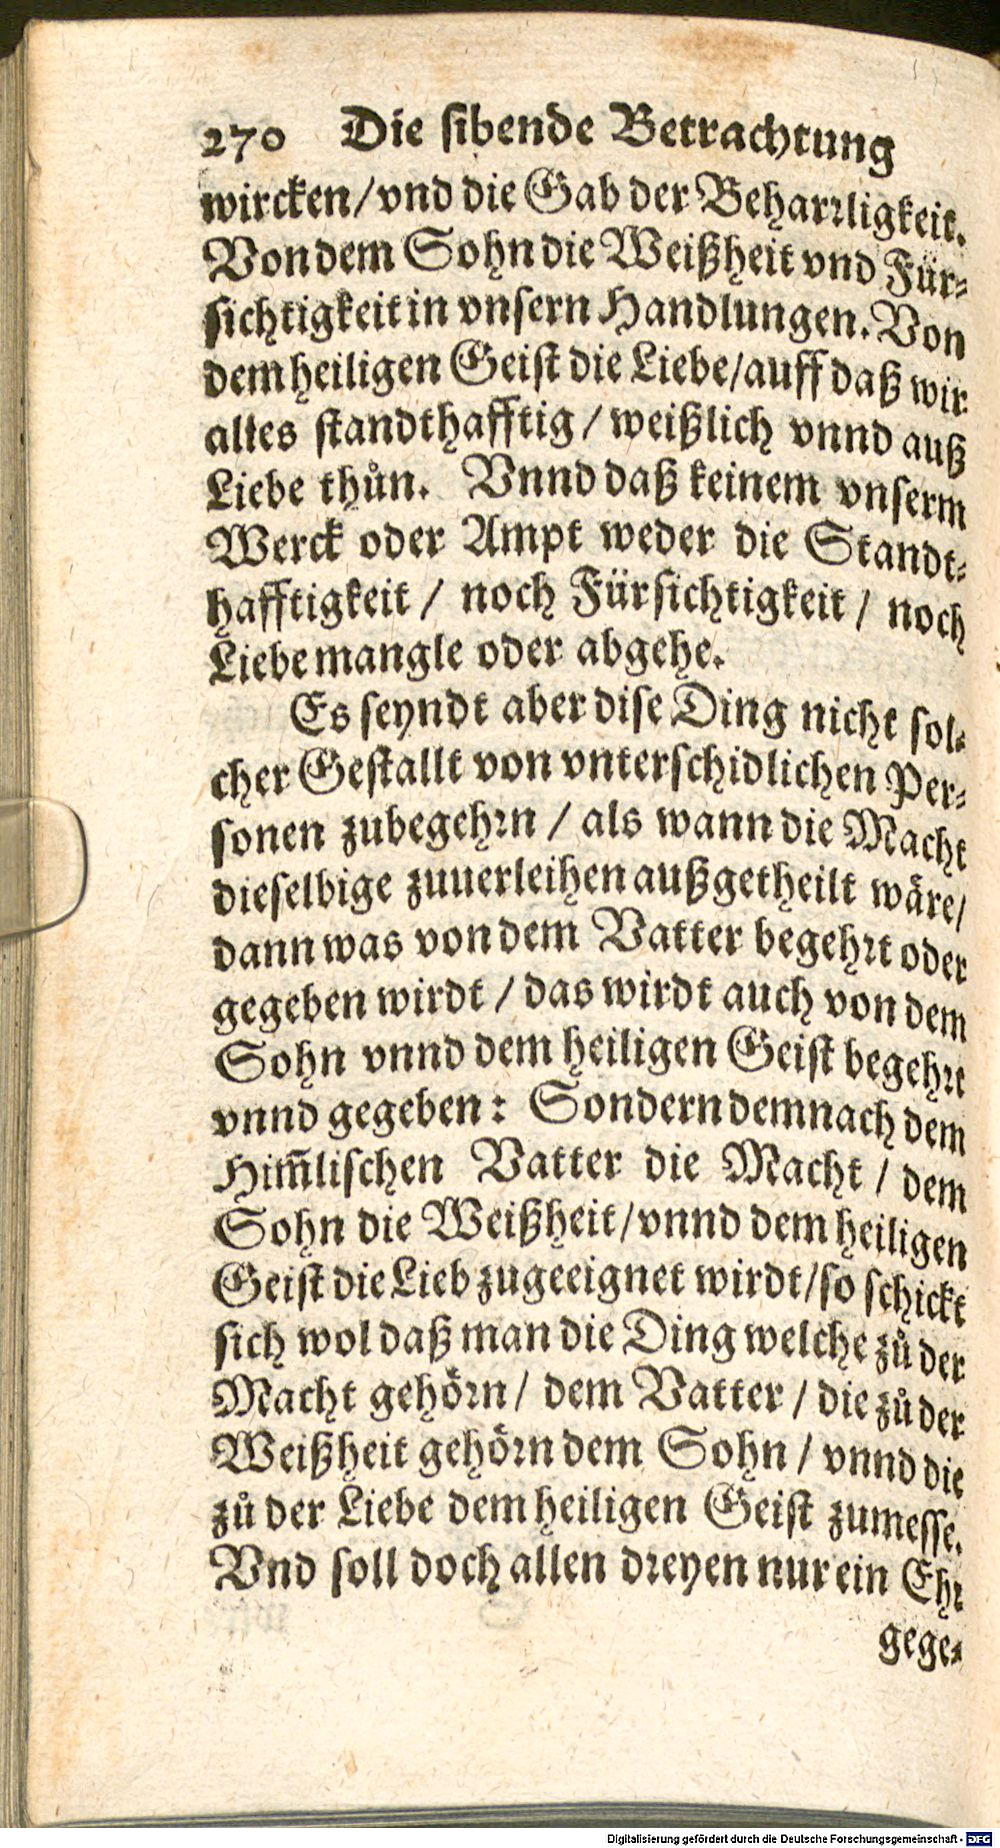 270 Die sibende Betrachtung
wircken/vnd die Gab der Beharrligkeit.
Von dem Sohn die Weißheit vnd Für-
sichtigkeit in vnsern Handlungen. Von
dem heiligen Geist die Liebe/auff daß wir
alles standthafftig / weißlich vnnd auß
Liebe thůn. Vnnd daß keinem vnserm
Werck oder Ampt weder die Standt-
hafftigkeit / noch Fürsichtigkeit / noch
Liebe mangle oder abgehe.
Es seyndt aber dise Ding nicht sol-
cher Gestallt von vnterschidlichen Per-
sonen zubegehrn / als wann die Macht
dieselbige zuuerleihen außgetheilt wäre/
dann was von dem Vatter begehrt oder
gegeben wirdt / das wirdt auch von dem
Sohn vnnd dem heiligen Geist begehrt
vnnd gegeben: Sondern demnach dem
Him̃lischen Vatter die Macht / dem
Sohn die Weißheit/vnnd dem heiligen
Geist die Lieb zugeeignet wirdt/so schickt
sich wol daß man die Ding welche zů der
Macht gehörn/ dem Vatter / die zů der
Weißheit gehörn dem Sohn / vnnd die
zů der Liebe dem heiligen Geist zumesse.
Vnd soll doch allen dreyen nur ein Ehr
gege-
Digitalisierung gefördert durch die Deutsche Forschungsgemeinschaft - DFG